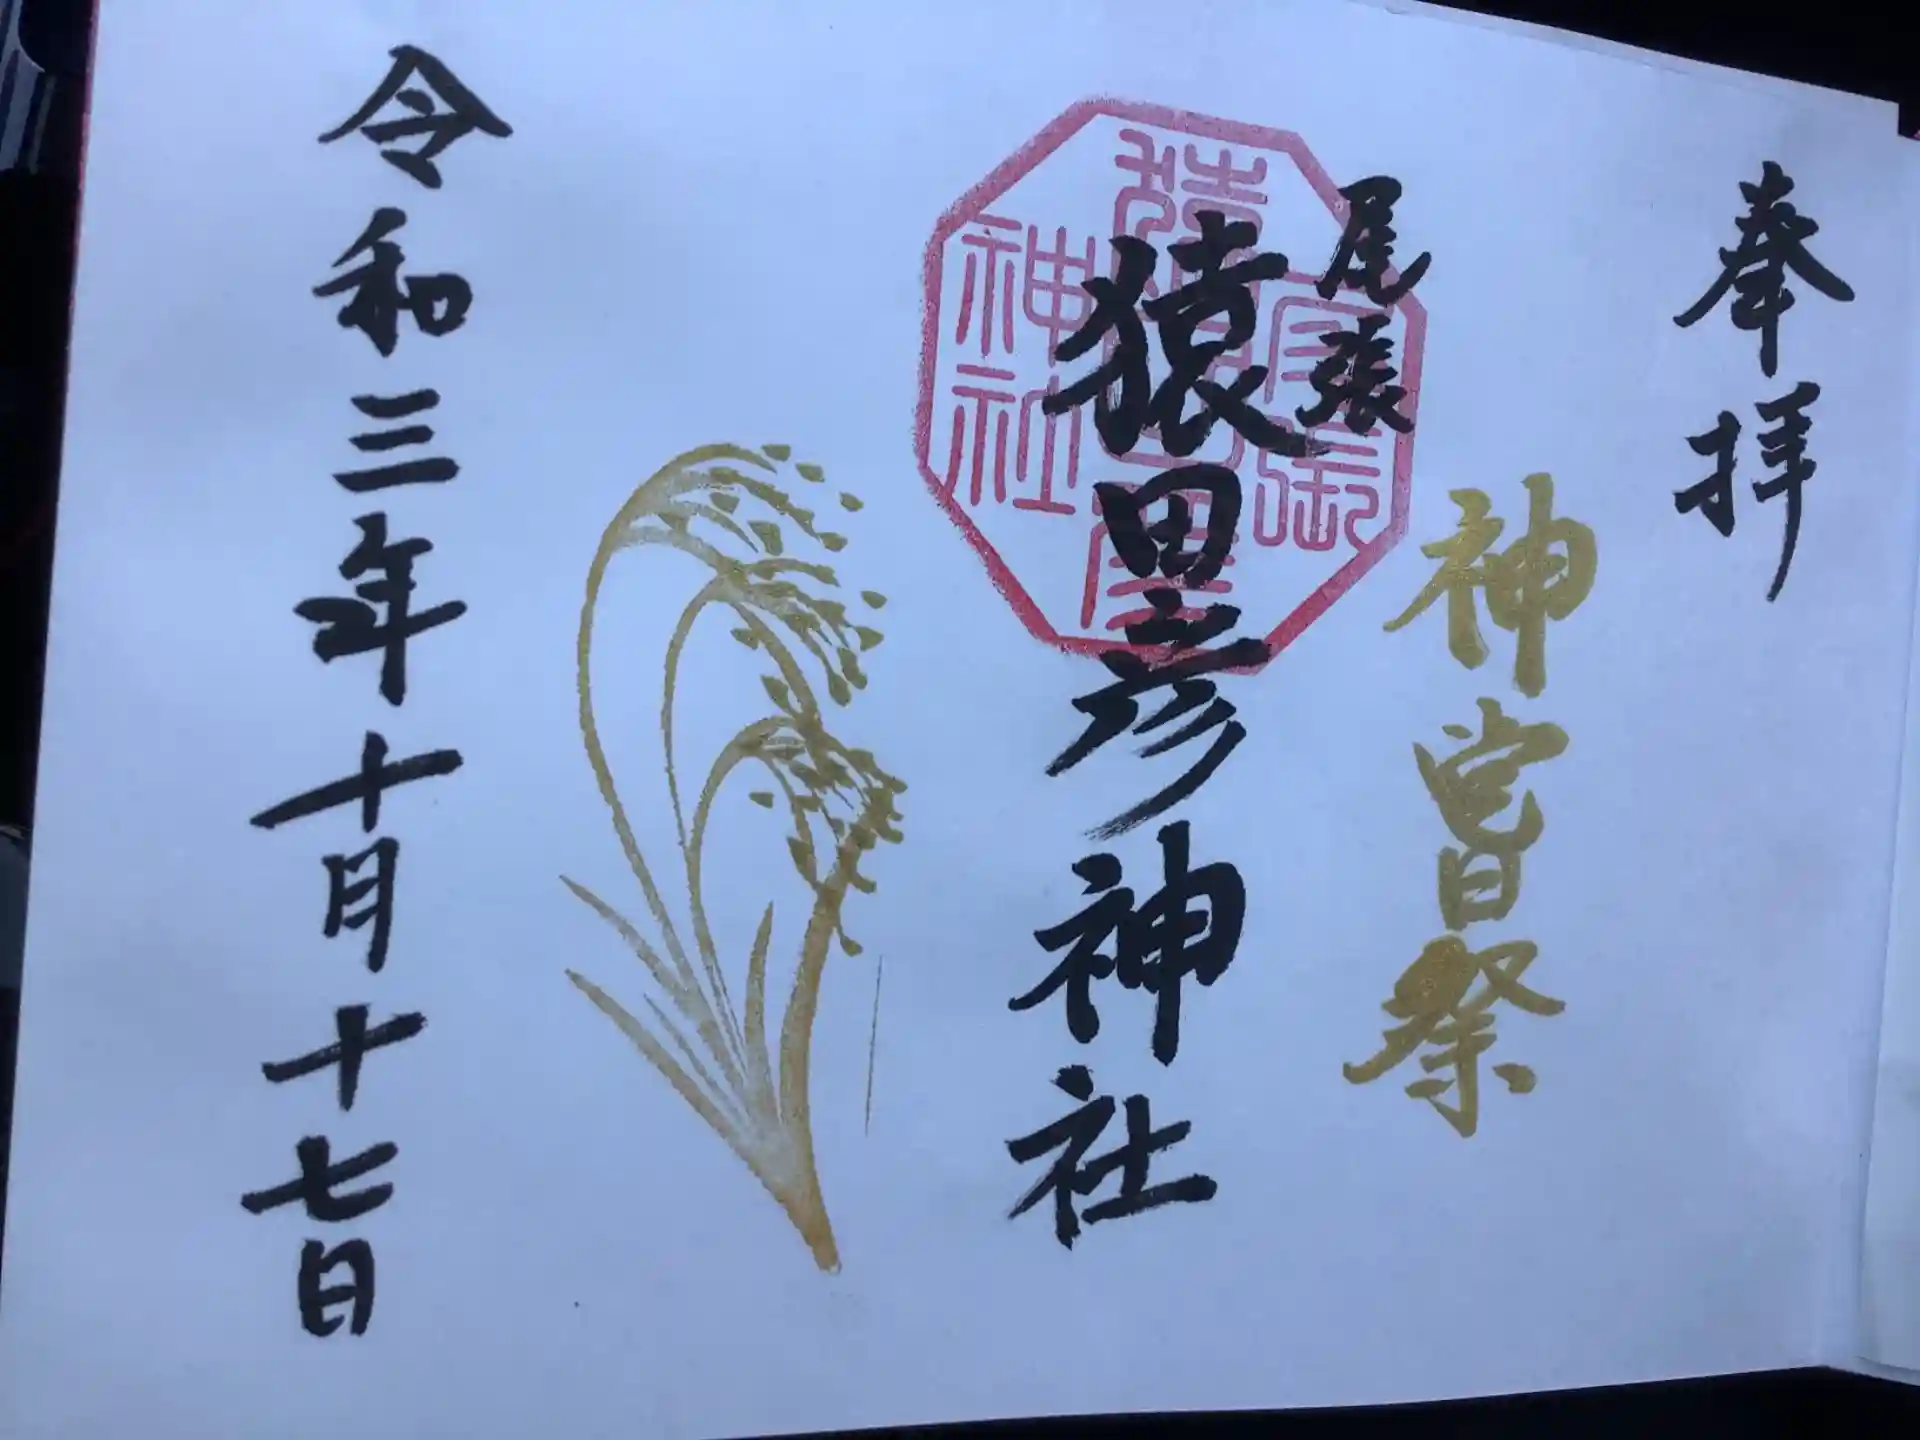 奉拝
神嘗祭
尾張
猿田彦神社
尾張
猿田彦
神社
令和三年十月十七日